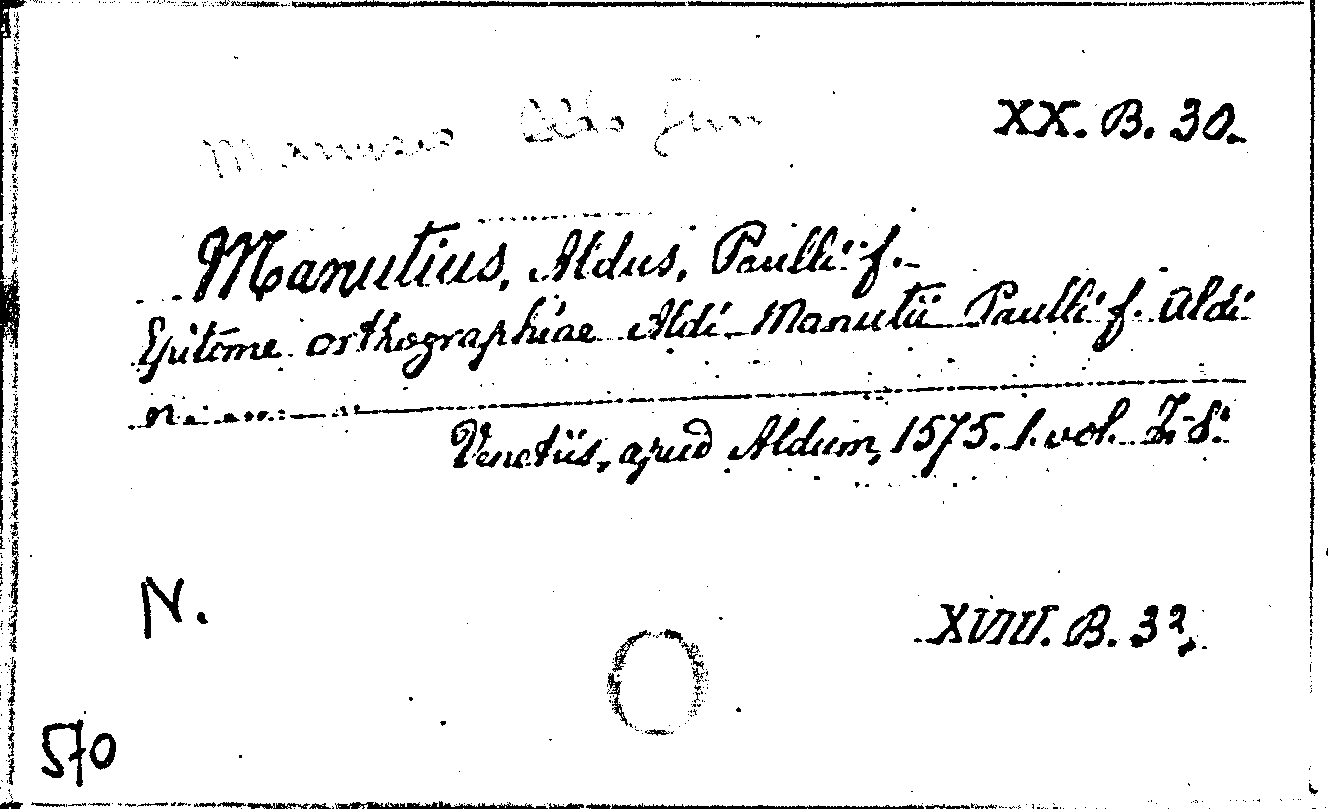 Manuzio Aldo Jun
XX. B. 30.
Manutius, Aldus, Paulli f.
Epitome orthographiae Aldi Manutii Paulli f. Aldi
Venetiis, apud Aldum, 1575. 1. vol. 8.
N.
XVIII. B. 32.
570